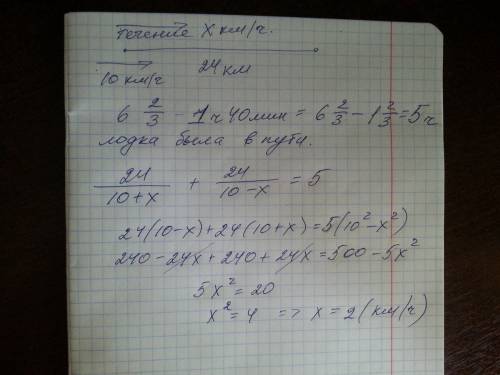 течение x км/ч.
24 км
10 км/ч
6 2/3 - 1 ч 40 мин = 6 2/3 - 1 2/3 = 5 ч
лодка была в пути.
24/(10+x) + 24/(10-x) = 5
24(10-x)+24(10+x)=5(10²-x²)
240-24x+240+24x=500-5x²
5x²=20
x²=4 => x=2(км/ч)